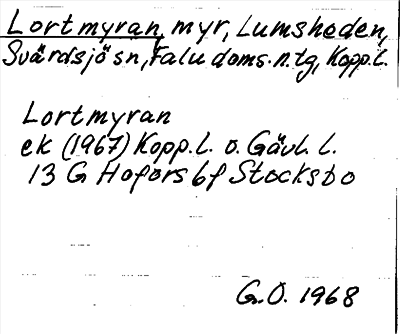 Lortmyran, myr, Lumsheden,
Svärdsjö sn, Falu doms.n.tg, Kopp.l.
Lortmyran
ek (1967) Kopp.l. o. Gävl. l.
13 G Hofors bf Stocksbo
G.O. 1968